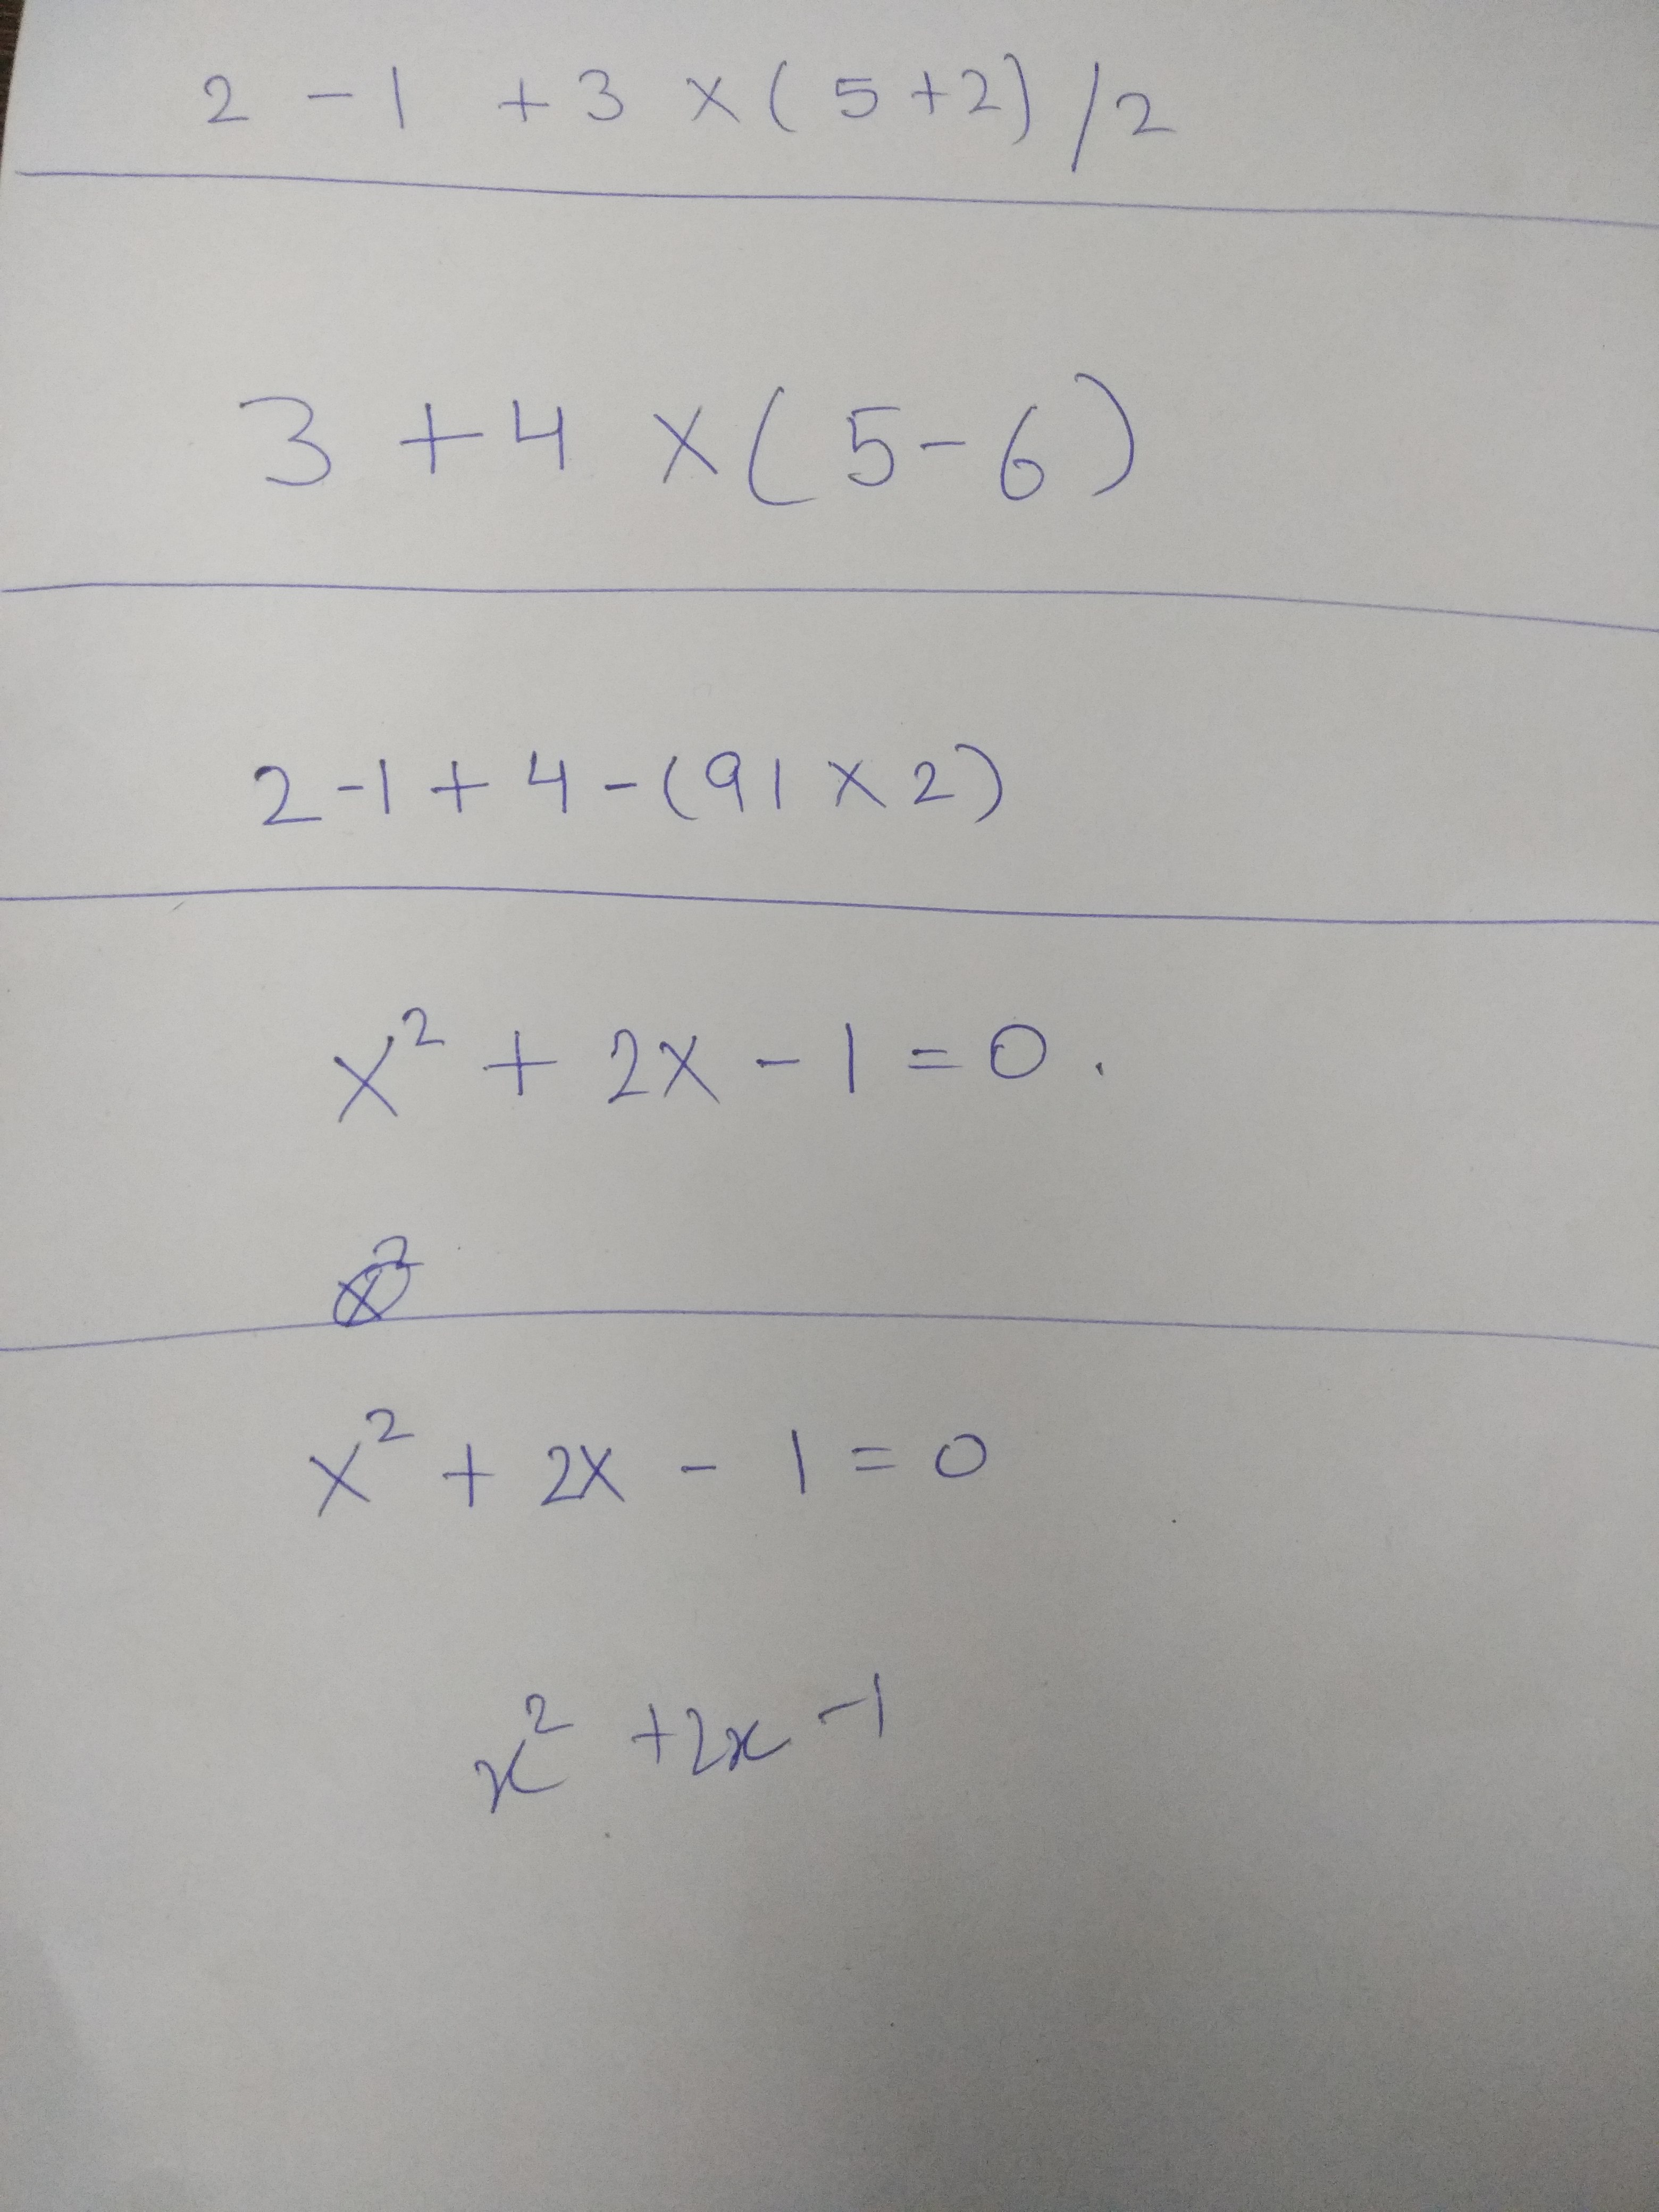 2 - 1 + 3 × ( 5 + 2 ) / 2
3 + 4 × ( 5 - 6 )
2 - 1 + 4 - ( 91 × 2 )
x² + 2x - 1 = 0 .
x²
x² + 2x - 1 = 0
x² + 2x - 1